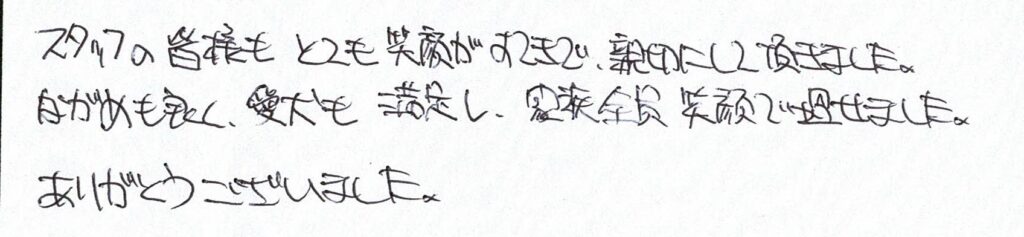 スタッフの皆様もとても笑顔がすてきで、親切にして頂きました。
ながめも良く、愛犬も満足し、家族全員笑顔で過せました。
ありがとうございました。